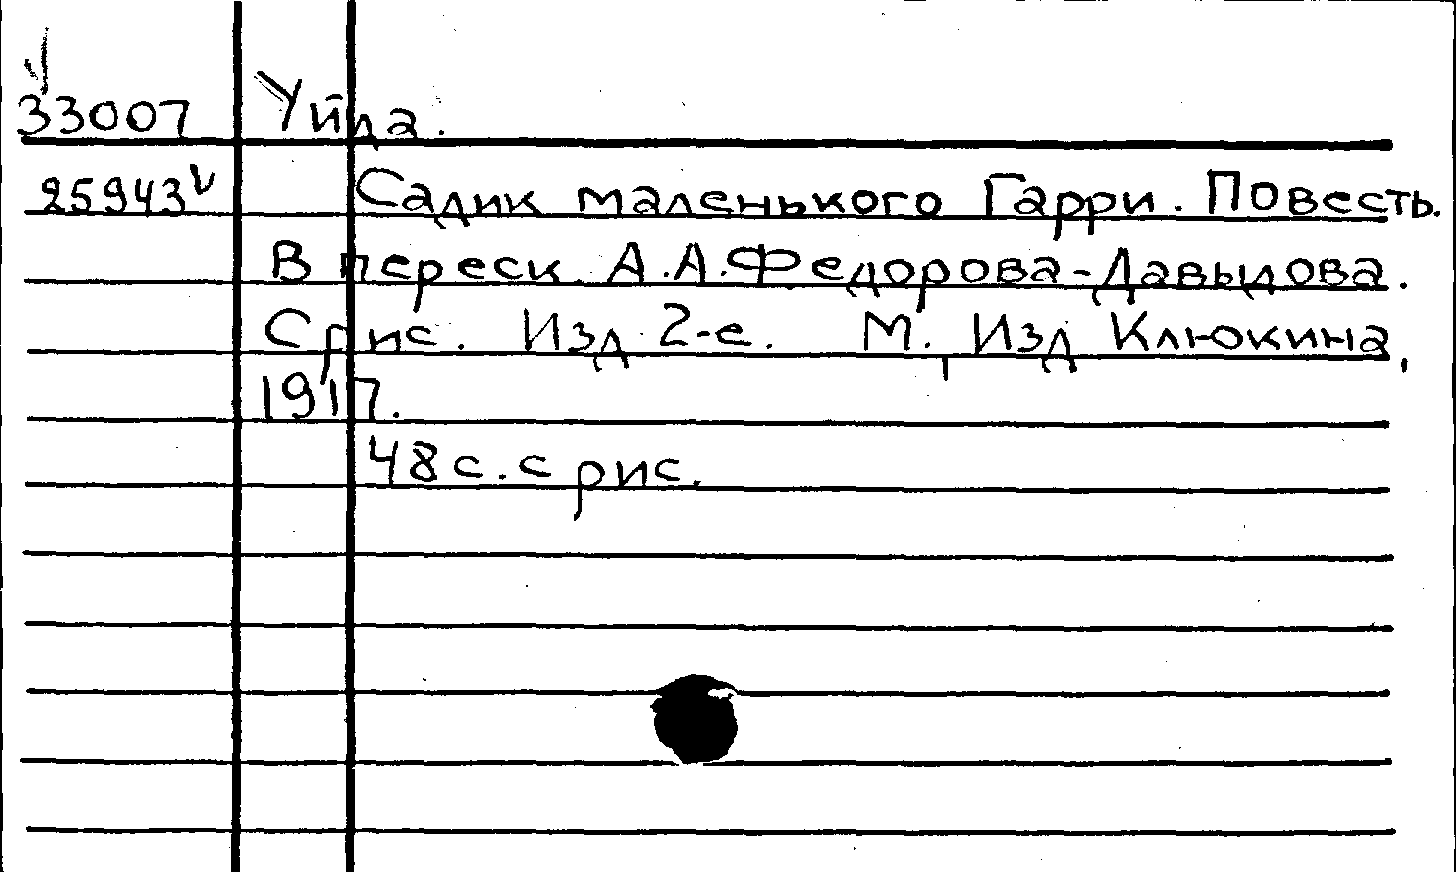 33007 Уйда.
25943 Садик маленького Гарри. Повесть.
В переск. А.А.Федорова-Давыдова.
С рис. Изд 2-е. М., Изд Клюкина,
1917.
48 с. с рис.